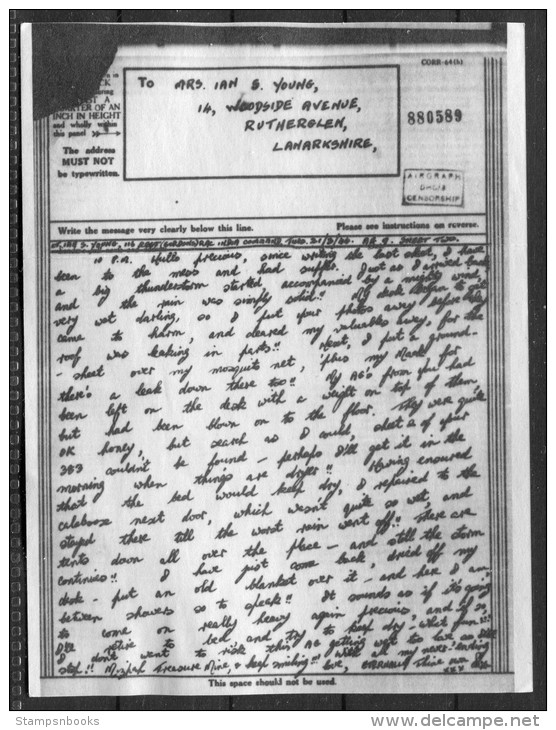 QUARTER OF AN
INCH IN HEIGHT
and wholly within
this panel
The address
MUST NOT
be typewritten.
CORR-64(b)
To MRS. IAN S. YOUNG,
14, WOODSIDE AVENUE,
RUTHERGLEN,
LANARKSHIRE,
880589
AIRGRAPH
CENSORSHIP
Write the message very clearly below this line.
Please see instructions on reverse.
IAN S. YOUNG, INDIA COMMAND SHEET TWO.
10 P.M. Hullo precious, since writing the last sheet, I have
been to the mess and had supper. Just as I arrived back
a big thunderstorm started, accompanied by a mighty wind,
and the rain was simply solid!! My desk began to get
very wet darling, so I put your photos away before they
came to harm, and cleared my valuables away, for the
roof was leaking in parts!! Next, I put a ground-
-sheet over my mosquito net, plus my Mack, for
there's a leak down there too!! My AG's from you had
been left on the desk with a weight on top of them
but had been blown on to the floor. They were quite
OK honey, but search as I could, sheet 2 of your
383 couldn't be found - perhaps I'll get it in the
morning when things are dryer!! Having ensured
that the bed would keep dry, I repaired to the
calaboose next door, which wasn't quite so wet, and
stayed there till the worst rain went off!! There are
tents down all over the place - and still the storm
continues!! I have just come back, dried off my
desk - put an old blanket over it - and here I am
between showers so to speak!! It sounds as if it's going
to come on really heavy again precious, and if so,
I'll retire to bed, and try to keep dry, what fun!!!
I don't want to risk this AG getting wet so here
stop!! Mizpah Treasure Mine, & keep smiling!!! With all my
love, Thine own
xxx
This space should not be used.
Stampsnbooks
www.delcampe.net